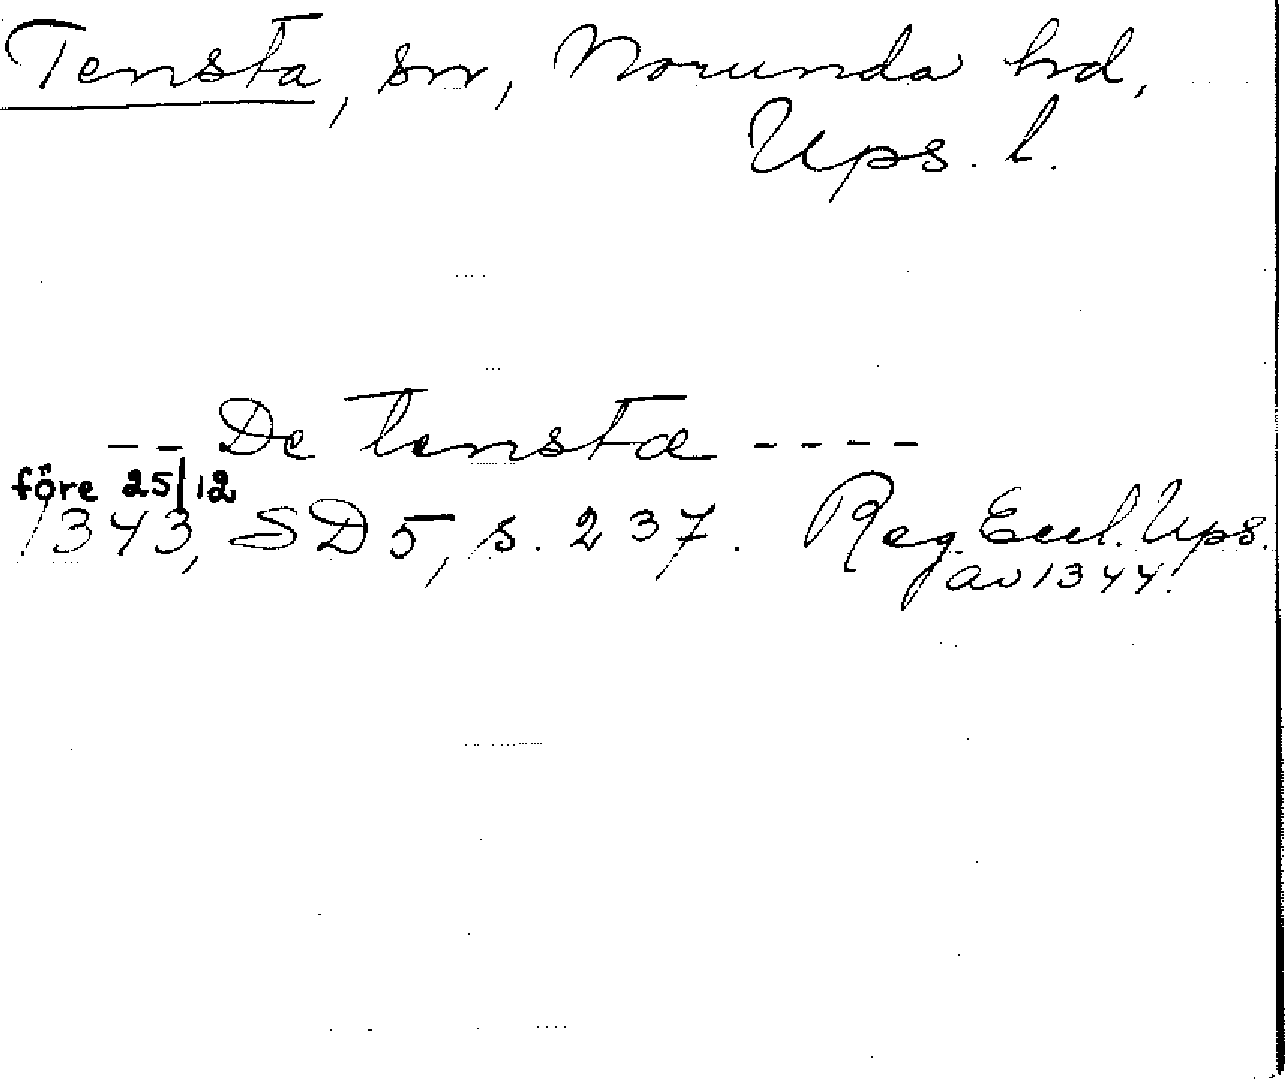 Tensta, sn, Norunda hd,
Ups. l.
-- De tenstæ ----
före 25/12
1343, SD 5, s. 237. Reg. Eccl. Ups.
av 1344.